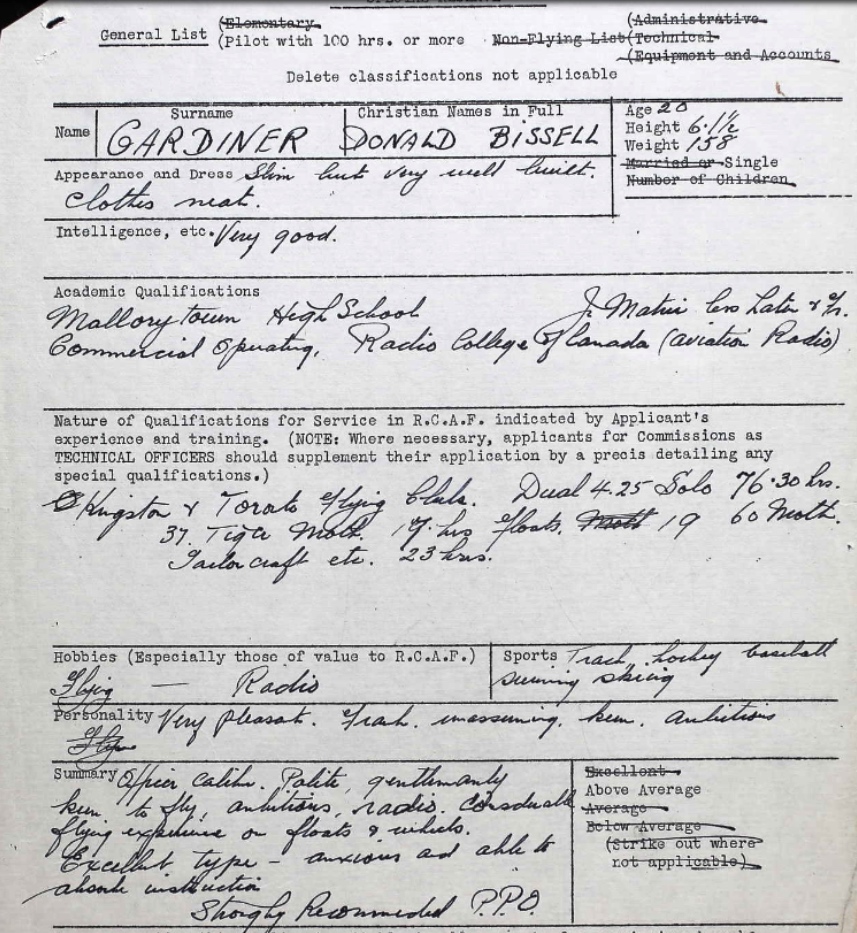 General List (Elementary (Administrative
(Pilot with 100 hrs. or more Non-Flying List(Technical
(Equipment and Accounts
Delete classifications not applicable
Surname Christian Names in Full Age 20
Name GARDINER DONALD BISSELL Height 6'1½
Weight 158
Married or Single
Number of Children
Appearance and Dress Slim but very well built.
Clothes neat.
Intelligence, etc. Very good.
Academic Qualifications
Mallorytown High School Jr Matric less Latin & Fr.
Commercial Operating, Radio College of Canada (aviation Radio)
Nature of Qualifications for Service in R.C.A.F. indicated by Applicant's
experience and training. (NOTE: Where necessary, applicants for Commissions as
TECHNICAL OFFICERS should supplement their application by a precis detailing any
special qualifications.)
Kingston & Toronto Flying Clubs. Dual 4.25 Solo 76.30 hrs.
37. Tiger Moth. 17. hrs floats. Moth 19 60 Moth.
Taylorcraft etc. 23 hrs.
Hobbies (Especially those of value to R.C.A.F.) Sports Track, hockey baseball
Flying — Radio swimming skiing
Personality Very pleasant. Frank. unassuming. keen. ambitious
Summary Officer calibre. Polite, gentlemanly
keen to fly, ambitious, radio. Considerable
flying experience on floats & wheels.
Excellent type - anxious and able to
absorb instruction
Strongly Recommended P.P.O.
Excellent
Above Average
Average
Below Average
(Strike out where
not applicable)